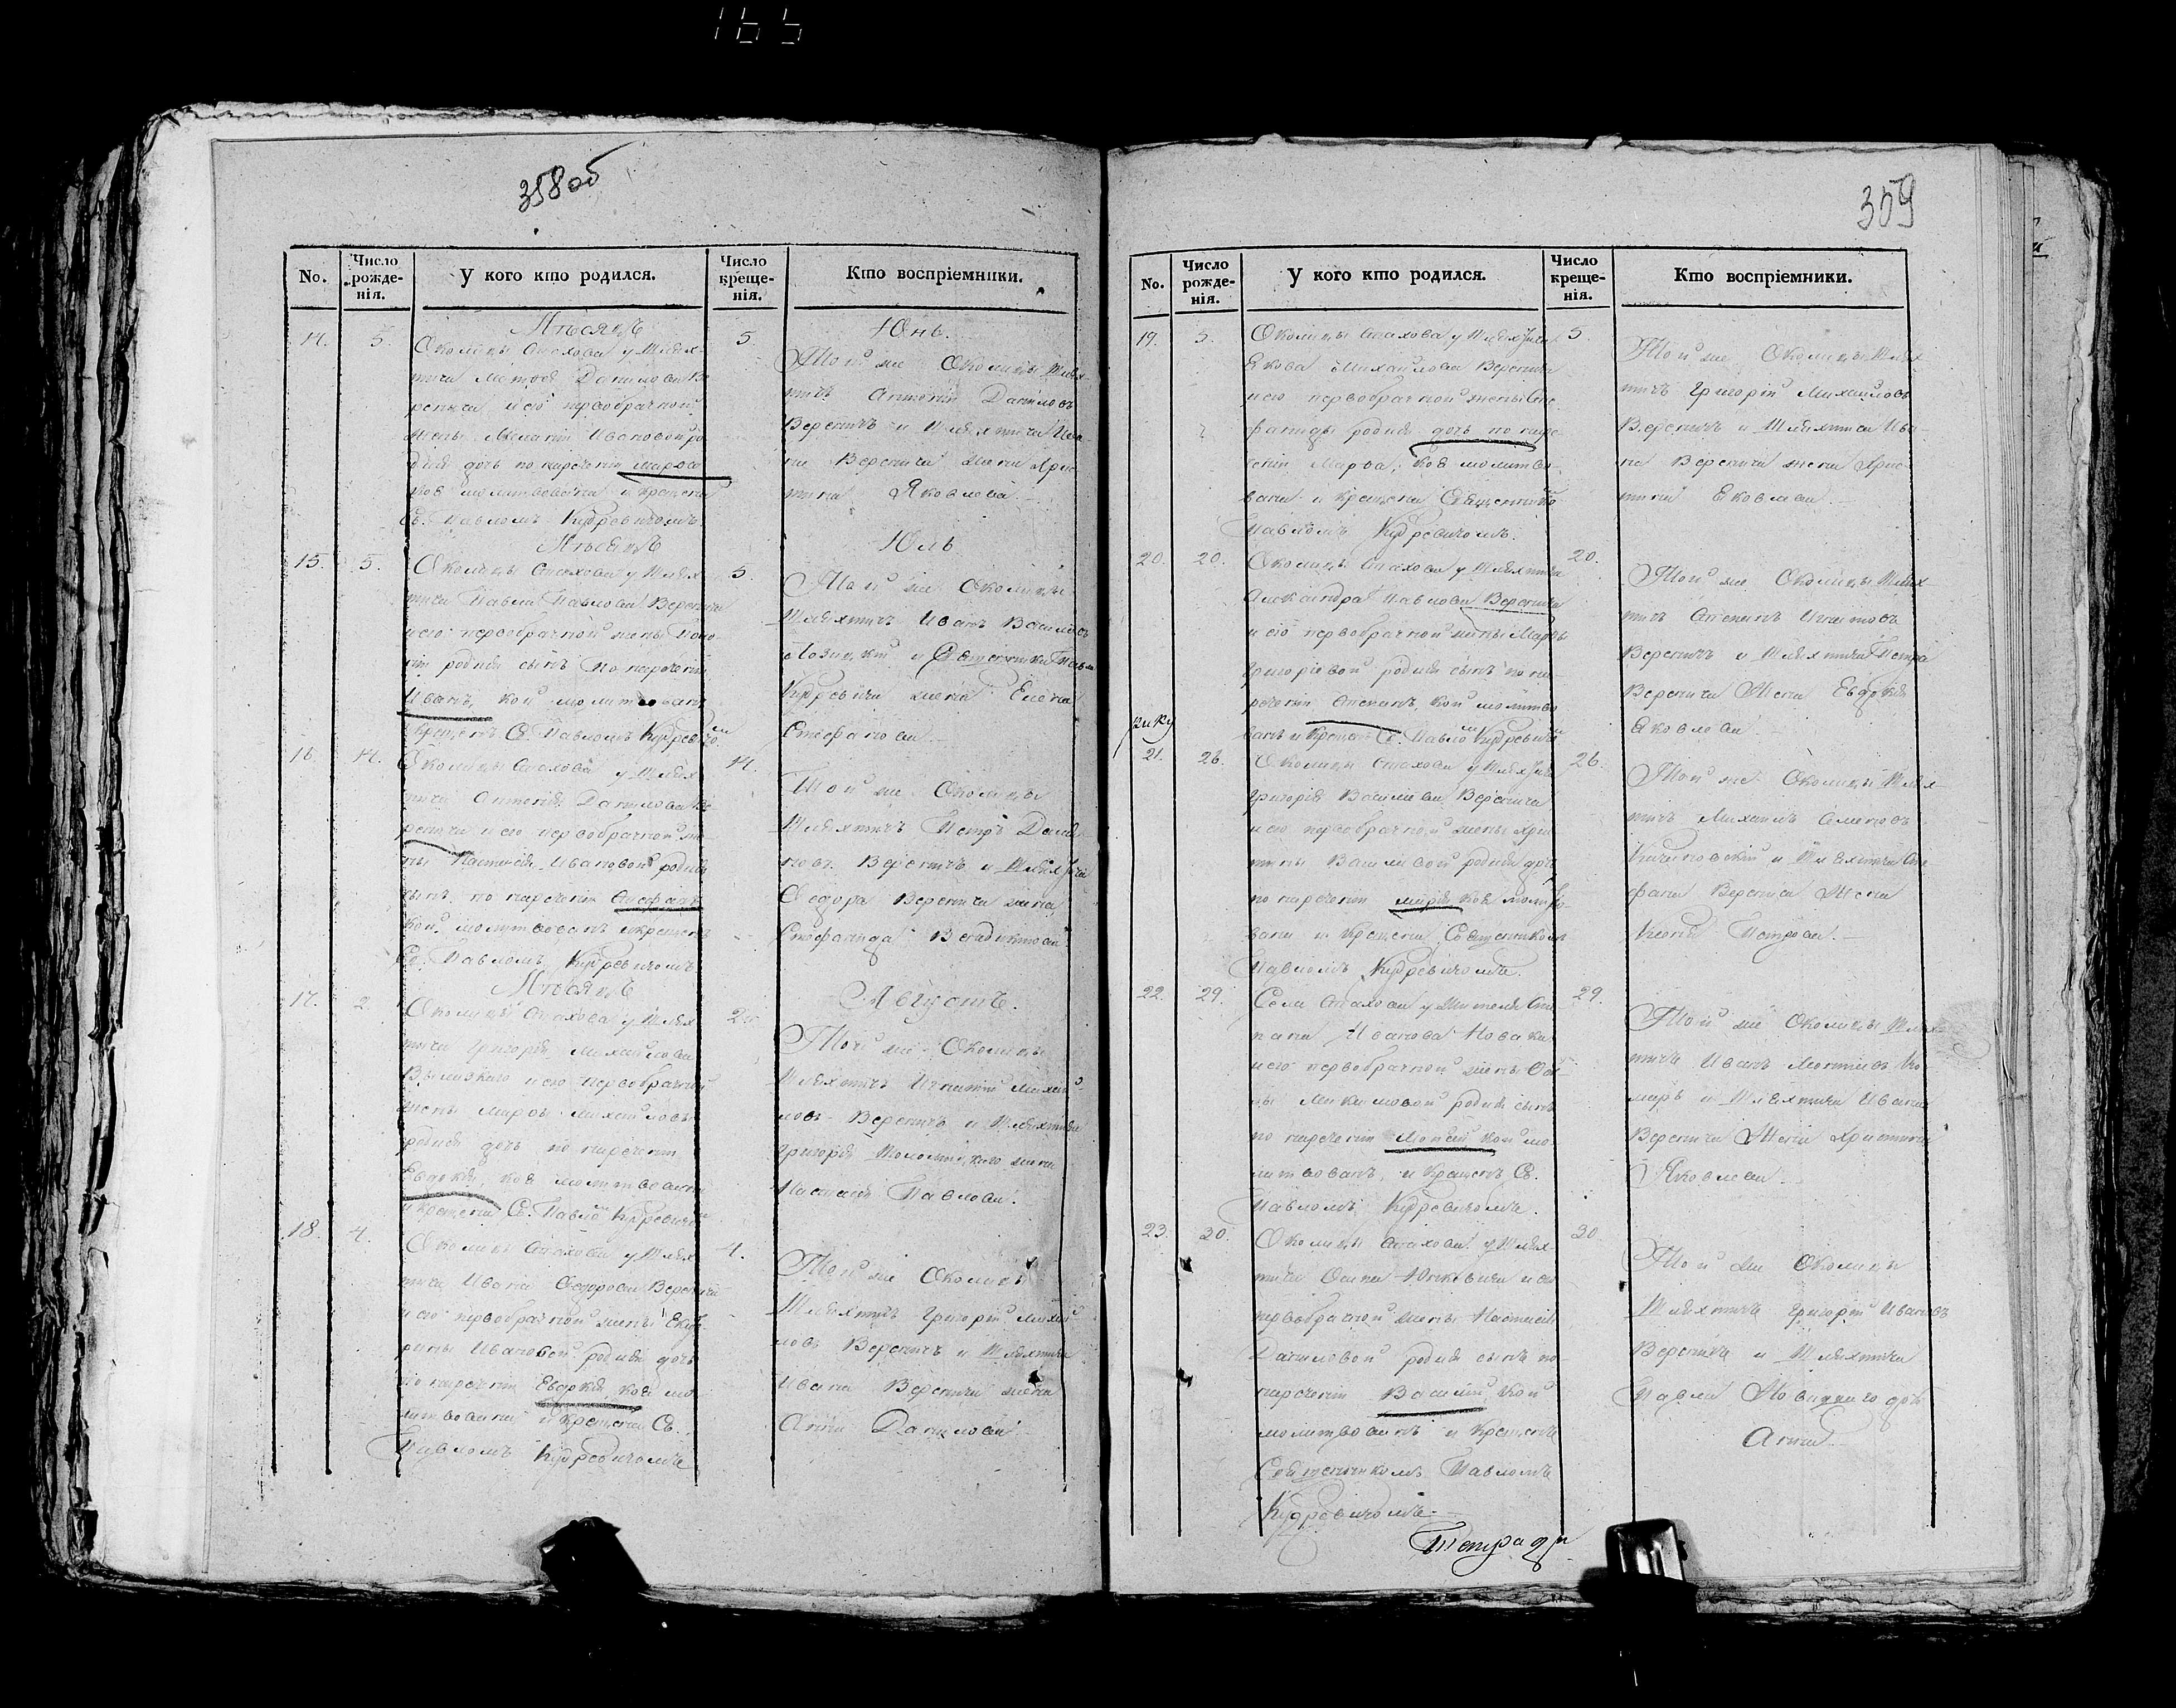 358 об
No.
Число рожде-нія.
У кого кто родился.
Число креще-нія.
Кто воспріемники.
Мѣсяцъ
Юнь.
14.
5.
Околицы Стахова у Шлях-
тича Матвѣя Данилова Ве
ренича и его первобрачной
жены Ивановой ро
дися дочь по наречении Марѳа
коя молитвована и крещена
Св. Павломъ Кудревичомъ
5.
Той же Околицы Шлях-
тичъ Антоній Даниловъ
Вереничъ и Шляхтича Ива
на Веренича жена Хрис
тина Яковлева.
Мѣсяцъ
Юль
15.
5.
Околицы Стахова у Шлях
тича Павла Павлова Веренича
и его первобрачной жены
родися сынъ по наречении
Иванъ, кой молитвованъ
крещенъ С. Павломъ Кудревичо
5.
Той же Околицы
Шляхтичъ Иванъ
и Священника Павла
Кудревича жена Елена
Стефанова
16.
14.
Околицы Стахова у Шлях
тича Антонія Данилова Ве
ренича и его первобрачной же
ны Ивановой родися
сынъ по наречении Стефанъ
кой молитвованъ и крещенъ
Св. Павломъ Кудревичомъ
14.
Той же Околицы
Шляхтичъ Петръ Дани
ловъ Вереничъ и Шляхтича
Ѳедора Веренича жена
Стефанида
Мѣсяцъ
Августъ.
17.
2
Околицы Стахова у Шлях
тича Григорія Михайлова
и его первобрачной
жены Марѳы Михайловой
родися дочь по наречении
Евдокія, коя молитвована
и крещена С. Павло Кудревичо
2.
Той же Околицы
Шляхтичъ Игнатій Михай
ловъ Вереничъ и Шляхтича
Григорія жена
Настасія Павлова.
18.
4.
Околицы Стахова у Шлях
тича Ивана Ѳедорова Веренича
и его первобрачной жены Екате
рины Ивановой родися дочь
по наречении Евдокія, коя мо
литвована и крещена Св.
Павломъ Кудревичомъ
4.
Той же Околицы
Шляхтичъ Григорій Михай
ловъ Вереничъ и Шляхтича
Ивана Веренича жена
Анна Данилова
359
No.
Число рожде-нія.
У кого кто родился.
Число креще-нія.
Кто воспріемники.
19.
5.
Околицы Стахова у Шляхтича
Якова Михайлова Веренича
и его первобрачной жены Сте
фаниды родися дочь по наре-
чении Марѳа, коя молитво
вана и крещена Священнико
Павломъ Кудревичомъ.
5.
Той же Околицы Шлях
тичъ Григорій Михайловъ
Вереничъ и Шляхтича Ива-
на Веренича жена Хрис-
тина Яковлева
20.
20.
Околицы Стахова у Шляхтича
Александра Павлова Веренича
и его первобрачной жены Марѳы
Григоріевой родися сынъ по на-
речении Степанъ, кой молитво
ванъ и крещенъ С. Павло Кудревичо
20.
Той же Околицы Шлях
тичъ Степанъ Игнатовъ
Вереничъ и Шляхтича Петра
Веренича Жена Евдокія
Яковлева
21.
26.
Околицы Стахова у Шляхтича
Григорія Василева Веренича
и его первобрачной жены Хрис
тины Василевой родися дочь
по наречении Марія коя молитво-
вана и крещена Священникомъ
Павломъ Кудревичомъ.
26.
Той же Околицы Шлях
тичъ Михаилъ Семеновъ
и Шляхтича Сте
фана Веренича Жена
Ксенія Петрова.
22.
29.
Села Стахова у Жителя Сте
пана Иванова Новака
и его первобрачной жены
родися сынъ
по наречении Моисей кой мо
литвованъ и крещенъ С.
Павломъ Кудревичомъ.
29.
Той же Околицы Шлях
тичъ Иванъ
и Шляхтича Ивана
Веренича Жена Христина
Яковлева
23.
30.
Околицы Стахова у Шлях-
тича Осипа и его
первобрачной жены Настасіи
Даниловой родися сынъ по
наречении Василій кой
молитвованъ и крещенъ
Священникомъ Павломъ
Кудревичомъ
30.
Той же Околицы
Шляхтичъ Григорій Ивановъ
Вереничъ и Шляхтича
Павла дочь
Анна